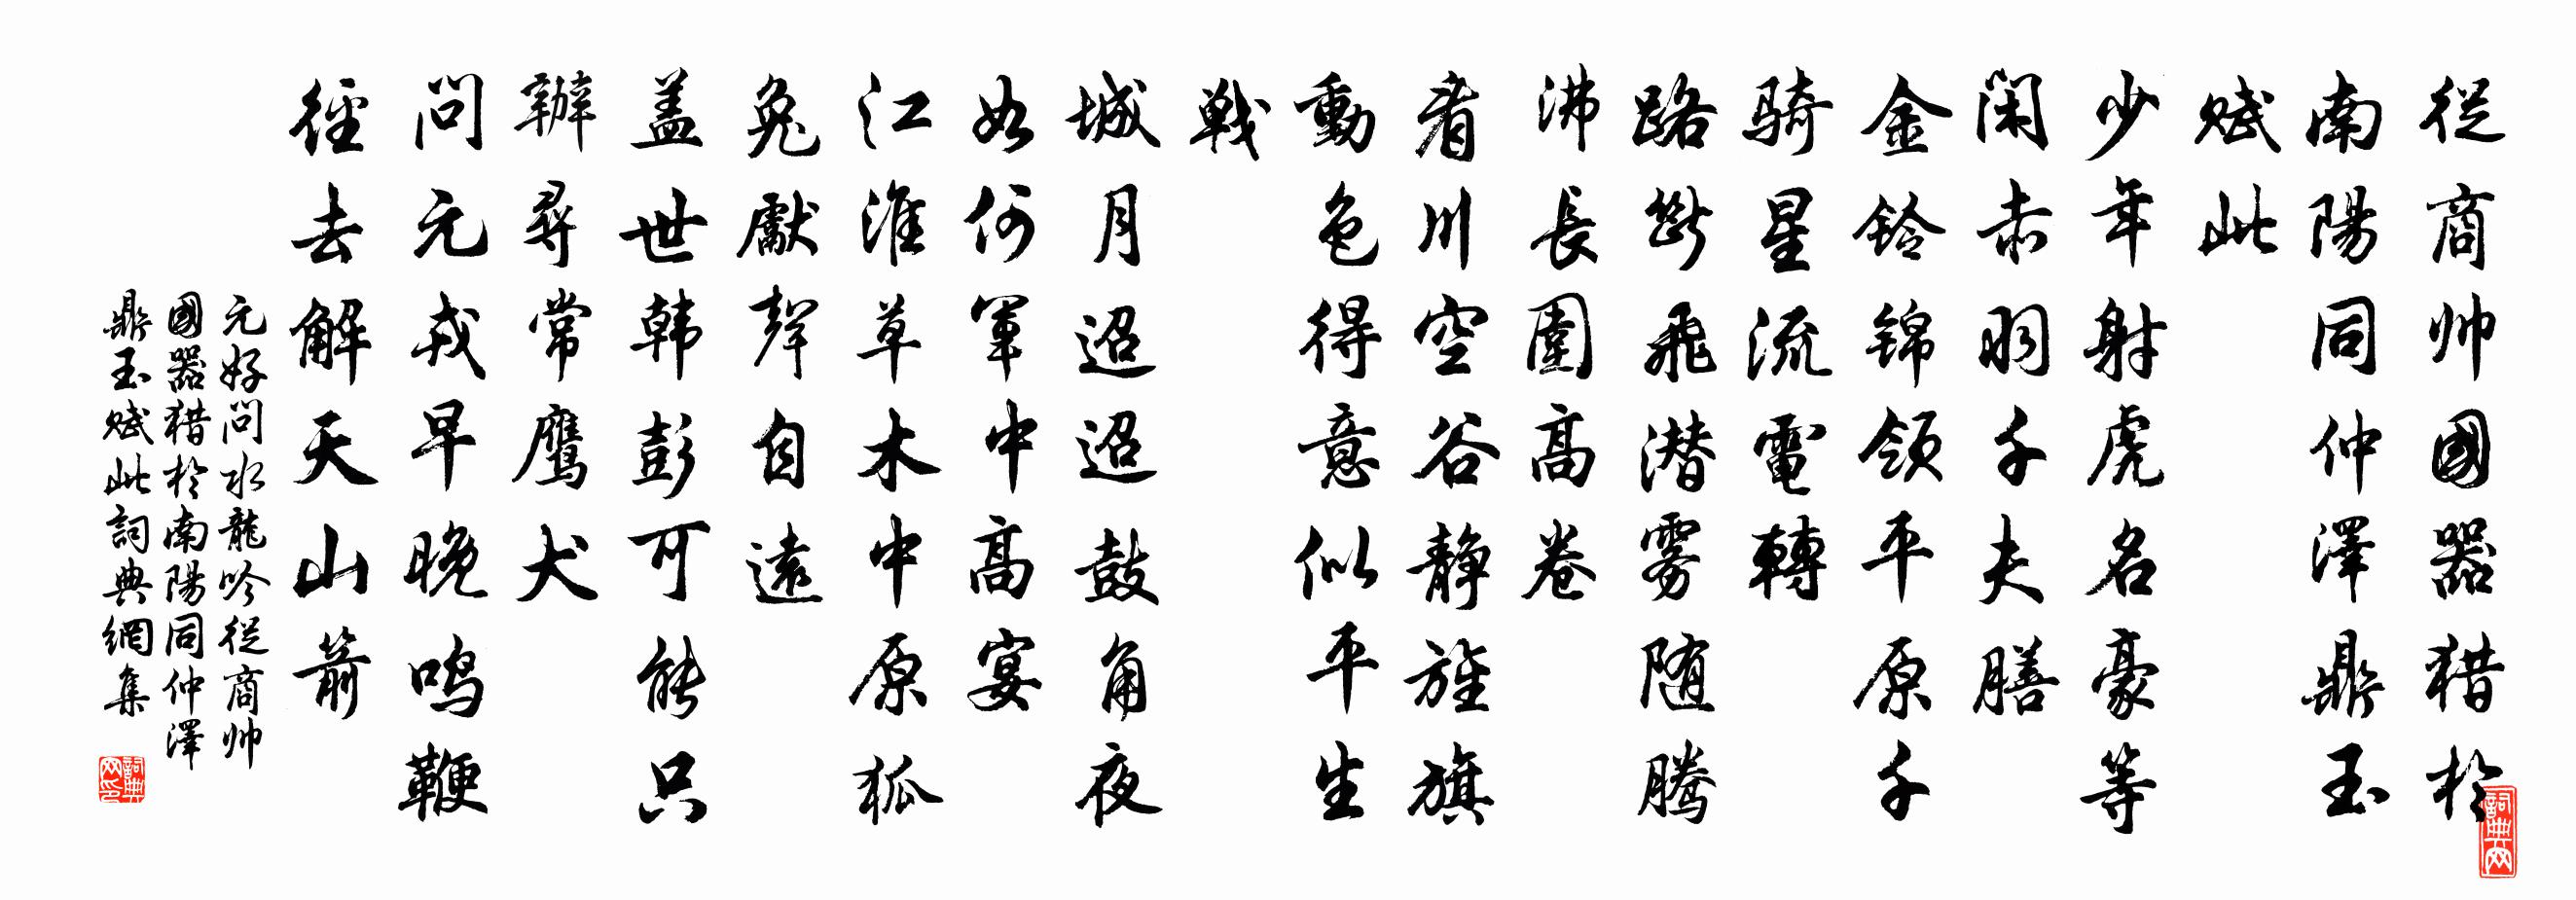 從商帅國器猎於
南陽同仲澤鼎玉
赋此
少年射虎名豪等
閑赤羽千夫膳
金鈴锦领平原千
骑星流電轉
路斷飛潜雾随腾
沸長圍高卷
看川空谷静旌旗
動色得意似平生
戦
城月迢迢鼓角夜
如何军中高宴
江淮草木中原狐
兔獻聲自遠
盖世韩彭可能只
辦尋常鷹犬
問元戎早晚鸣鞭
徑去解天山箭
元好問水龍吟從商帅
國器猎於南陽同仲澤
鼎玉赋此詞典網集
詞典网
詞典网印